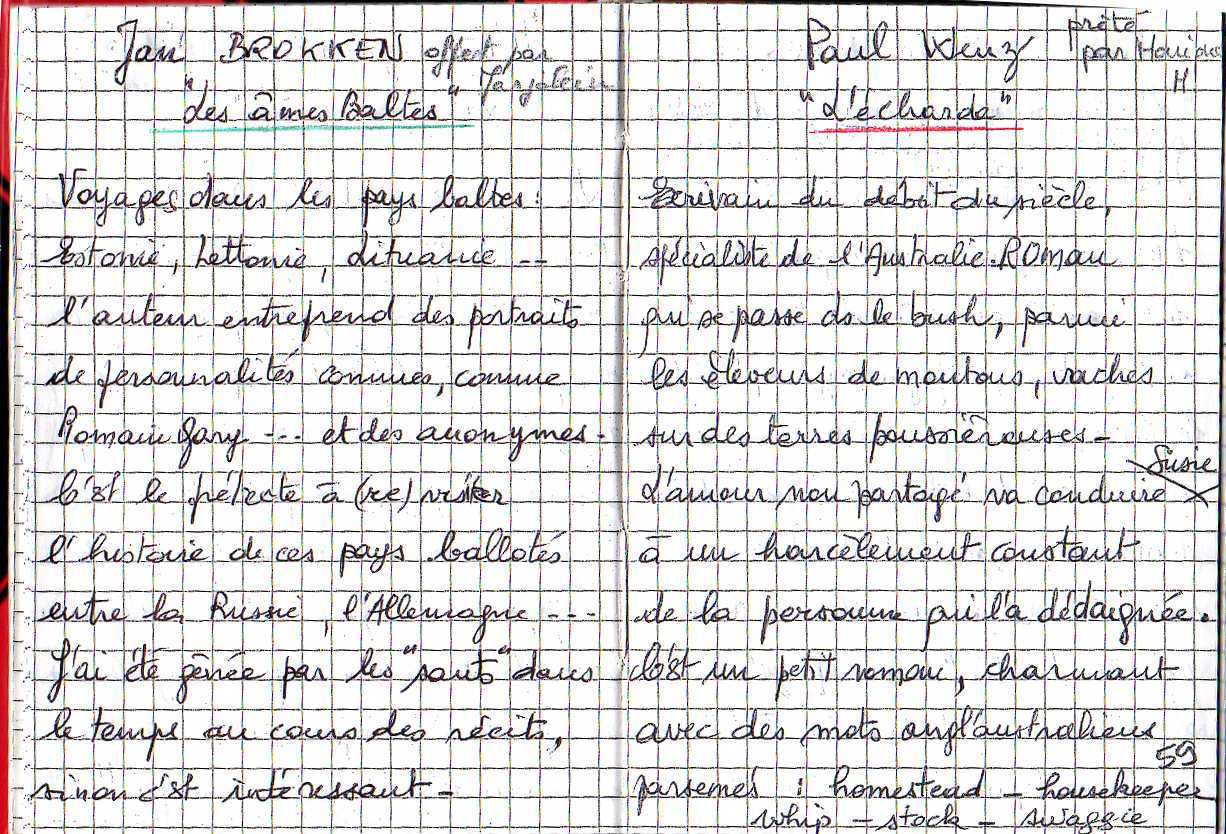 Jan BROKKEN offert par
"des âmes Baltes"
Voyages dans les pays baltes :
Estonie, Lettonie, Lituanie --
l'auteur entreprend des portraits
de personnalités connues, comme
Romain Gary --- et des anonymes.
C'est le prétexte à (re) visiter
l'histoire de ces pays ballotés
entre la Russie, l'Allemagne ---
J'ai été gênée par les "sauts" dans
le temps au cours des récits,
sinon c'est intéressant -
Paul Wenz prêté
par
H
"L'écharde"
Ecrivain du début du siècle,
spécialiste de l'Australie. ROman
qui se passe ds le bush, parmi
les éleveurs de moutons, vaches
sur des terres poussièreuses -
Susie
L'amour non partagé va conduire
à un harcèlement constant
de la personne qui l'a dédaignée.
C'est un petit roman, charmant
avec des mots angl'australiens
59
parsemés : homestead - housekeeper
whip - stock - swaggie